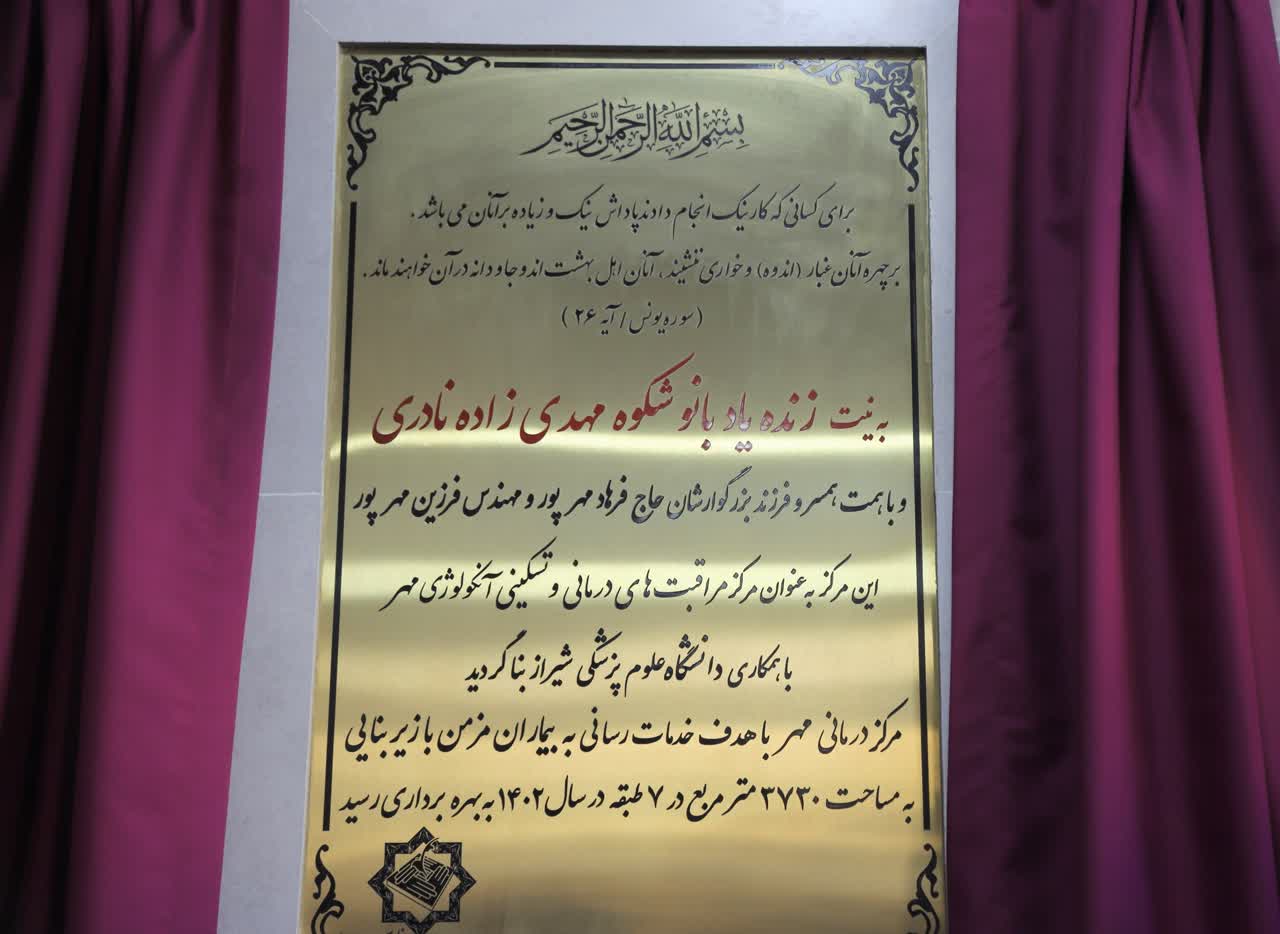 بسم الله الرحمن الرحیم
برای کسانی که کار نیک انجام دادند پاداش نیک و زیاده بر آنان می باشد .
بر چهره آنان غبار (اندوه) و خواری ننشیند ، آنان اهل بهشت اند و جاودانه در آن خواهند ماند .
( سوره یونس / آیه ۲۶ )
به نیت زنده یاد بانو شکوه مهدی زاده نادری
و با همت همسر و فرزند بزرگوارشان حاج فرهاد مهر پور و مهندس فرزین مهر پور
این مرکز به عنوان مرکز مراقبت های درمانی و تسکینی آنکولوژی مهر
با همکاری دانشگاه علوم پزشکی شیراز بنا گردید
مرکز درمانی مهر با هدف خدمات رسانی به بیماران مزمن با زیر بنایی
به مساحت ۳۷۳۰ متر مربع در ۷ طبقه در سال ۱۴۰۲ به بهره برداری رسید